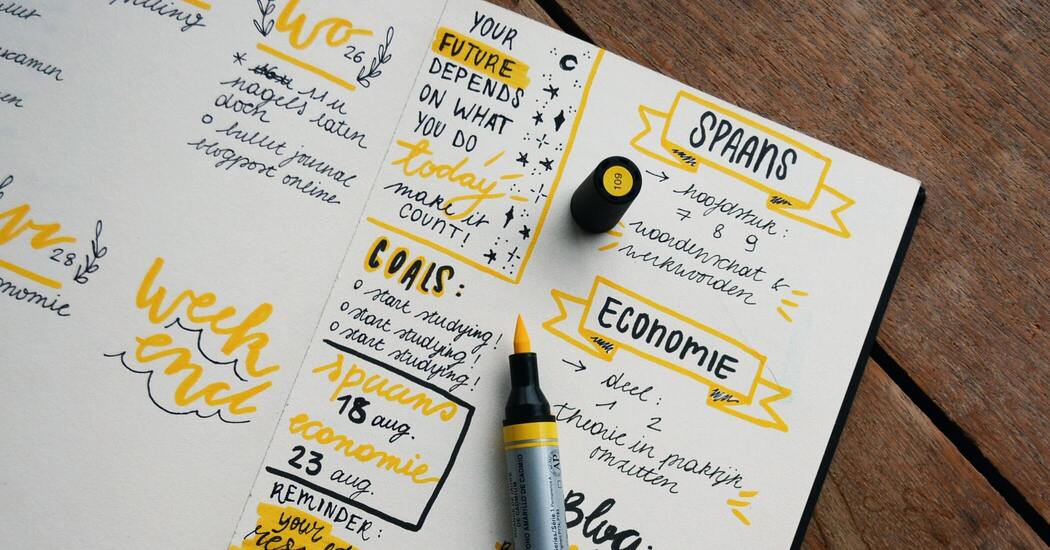 Wo
26
* 11u
nagels laten
doen
o bullet journal
blogpost online
28
Week
end
YOUR
FUTURE
DEPENDS
ON WHAT
YOU DO
today
make it
COUNT!
GOALS:
o start studying!
o start studying!
o start studying!
spaans
18 aug.
economie
23 aug.
REMINDER:
your
109
SPAANS
→ hoofdstuk:
7 8 9
woordenschat &
werkwoorden
ECONOMIE
→ deel:
1 2
theorie in praktijk
omzetten
Blog